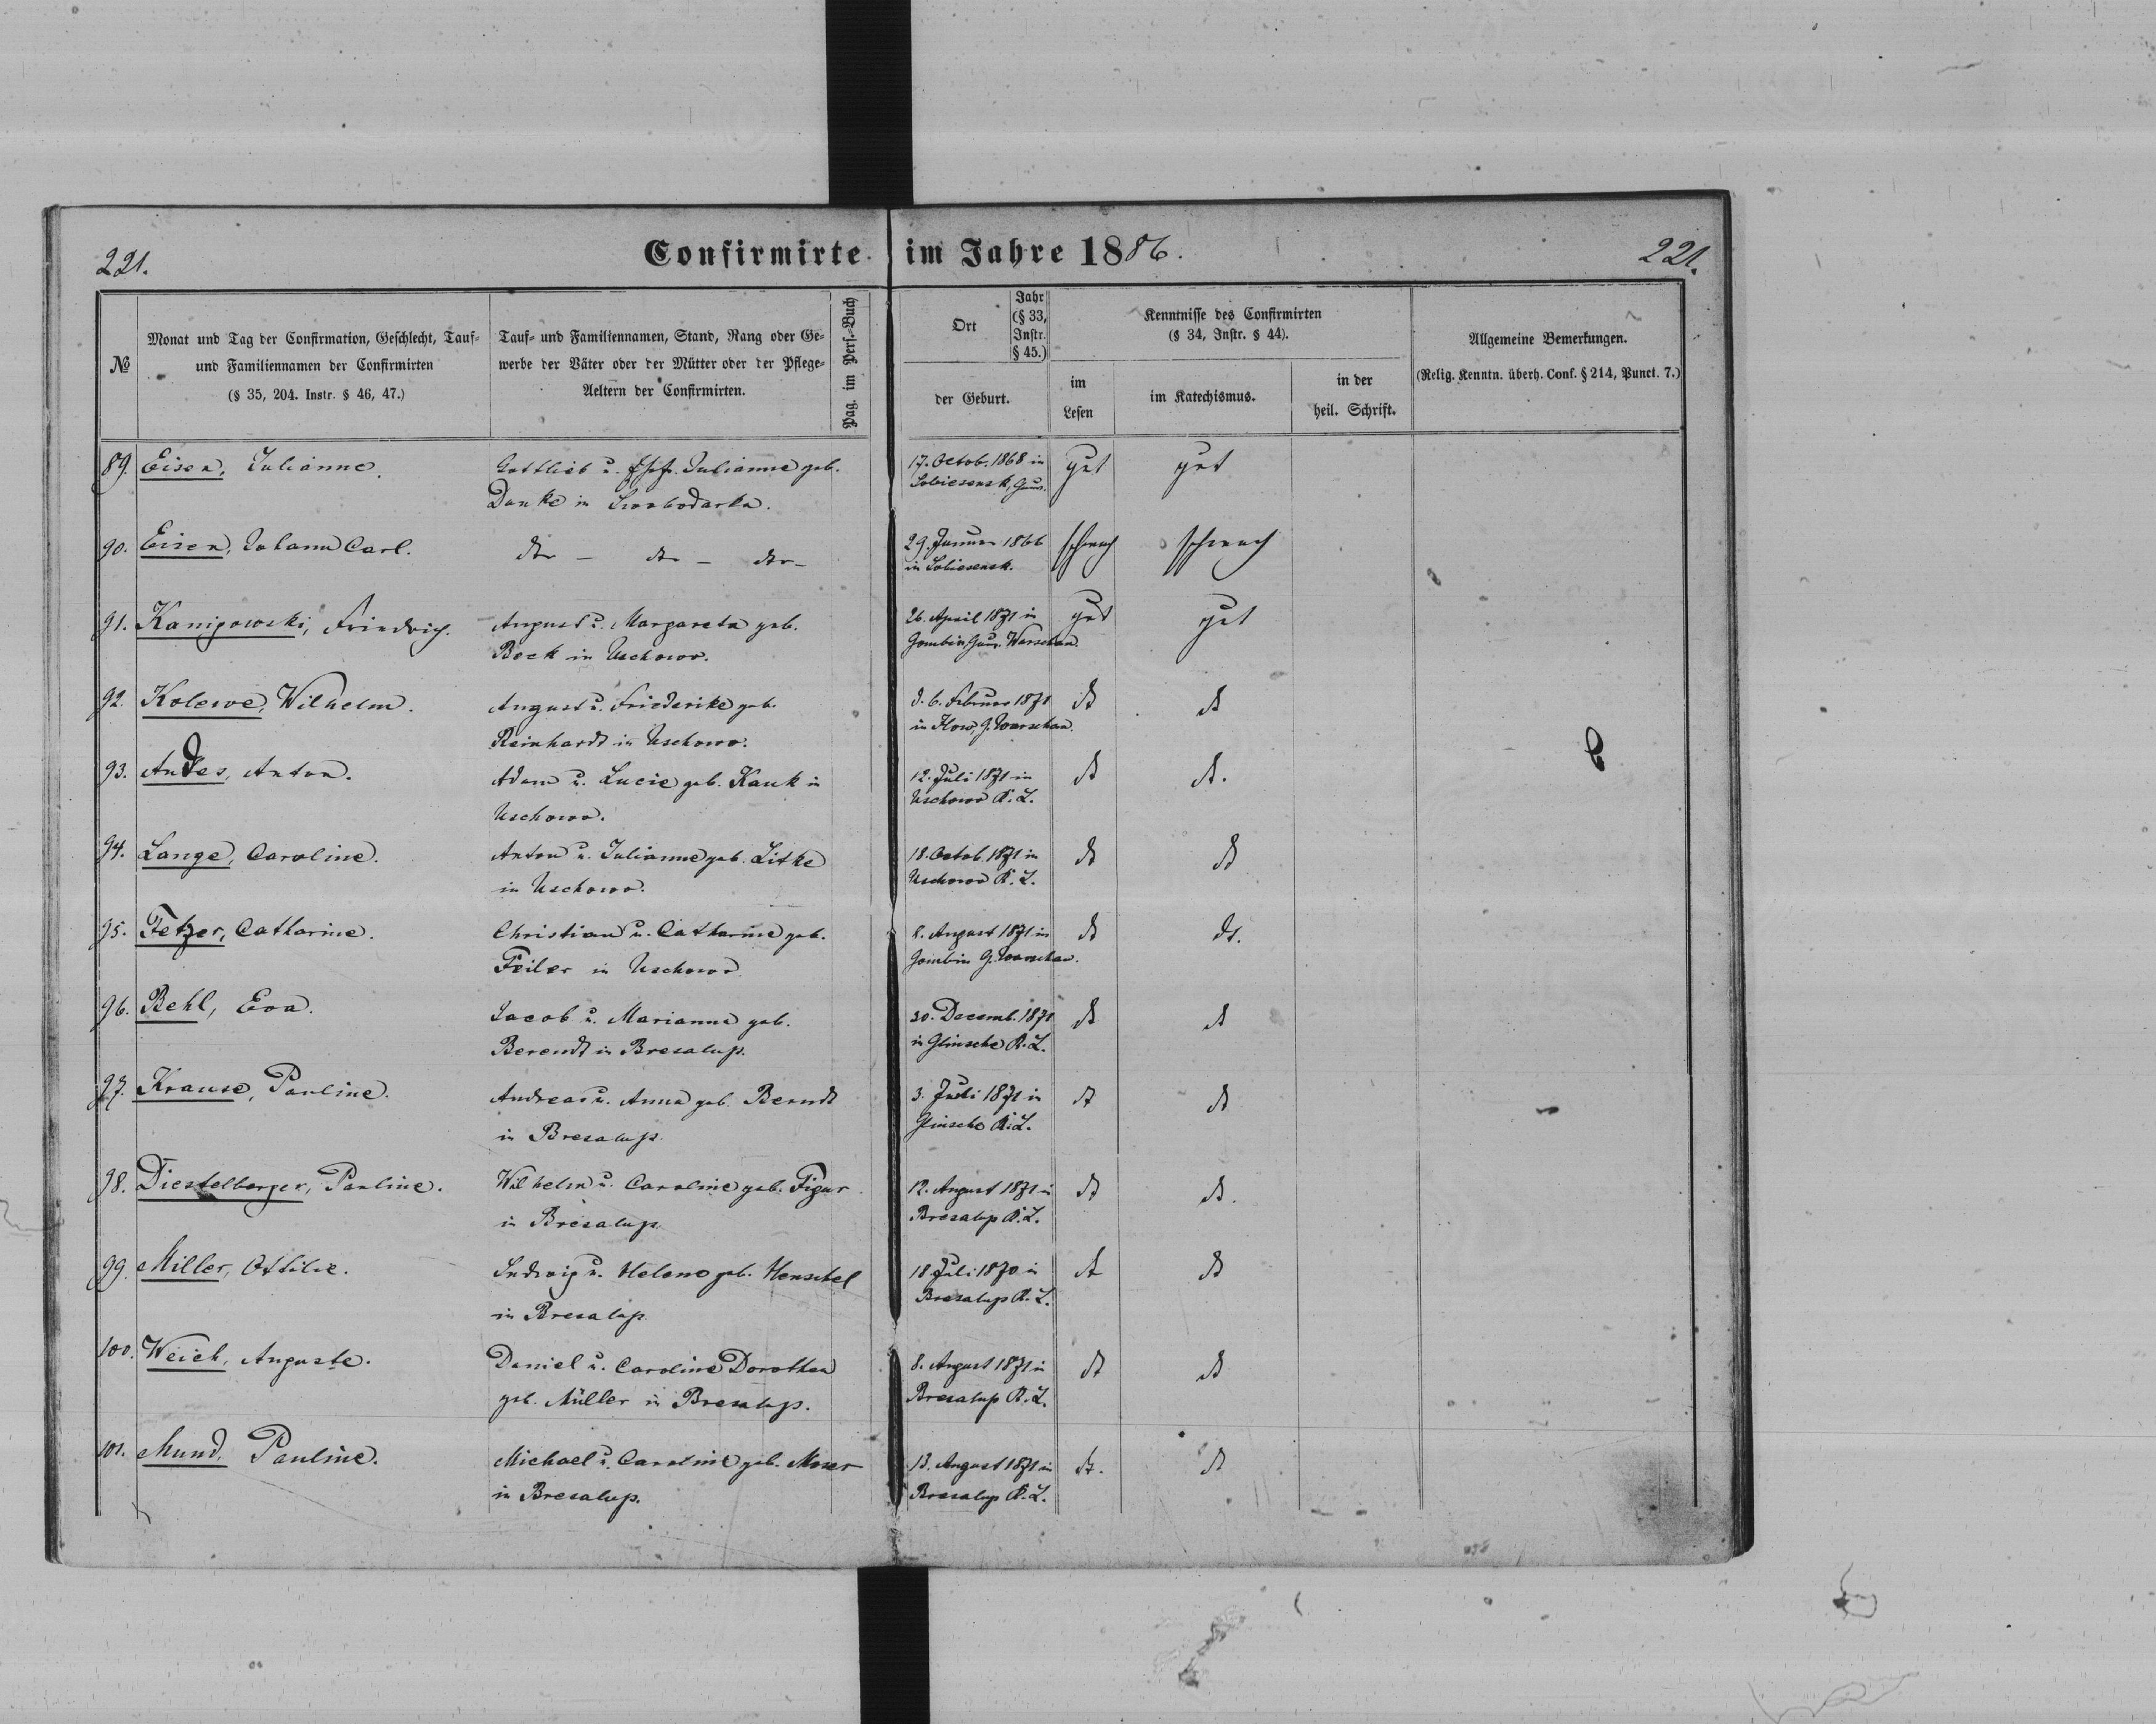 221.
Confirmirte im Jahre 1886.
221.
№
Monat und Tag der Confirmation, Geschlecht, Tauf-
und Familiennamen der Confirmirten
(§ 35, 204. Instr. § 46, 47.)
Tauf- und Familiennamen, Stand, Rang oder Ge-
werbe der Väter oder der Mütter oder der Pflege-
Aeltern der Confirmirten.
Pag. im Pers.-Buch
Ort
Jahr
(§ 33,
Instr.
§ 45.)
der Geburt.
Kenntnisse des Confirmirten
(§ 34, Instr. § 44).
im
Lesen
im Katechismus.
in der
heil. Schrift.
Allgemeine Bemerkungen.
(Relig. Kenntn. überh. Conf. § 214, Punct. 7.)
89. Eisen, Julianne. Gottlieb u. Julianne geb. 17. Octob. 1868 in gut gut
Danke in Swobodarka. Sobiesensk, Gouv.
90. Eisen, Johann Carl. dto - dto - dto - 29. Januar 1866 schwach schwach
in Sobiesensk.
91. Kanigowski, Friedrich. August u. Margareta geb. 26. April 1871 in gut gut
Bock in Uschowo. Gombin, Gouv. Warschau.
92. Kolewe, Wilhelm. August u. Friederike geb. d. 6. Februar 1871 dt dt
Reinhardt in Uschowo. in Ilow, G. Warschau.
93. Andes, Anton. Adam u. Lucie geb. Kauk in 12. Juli 1871 in dt dt.
Uschowo. Uschowo K. L.
94. Lange, Caroline. Anton u. Julianne geb. Litke 18. Octob. 1871 in dt dt
in Uschowo. Uschowo K. L.
95. Fetzer, Catharine. Christian u. Catharine geb. 2. August 1871 in dt dt.
Feiler in Uschowo. Gombin G. Warschau.
96. Behl, Eva. Jacob u. Marianna geb. 30. Decemb. 1871 dt dt
Berendt in Bresalup. in Glinsche K. L.
97. Krause, Pauline. Andreas u. Anna geb. Berndt 3. Juli 1871 in dt dt
in Bresalup. Glinsche K. L.
98. Diestelberger, Pauline. Wilhelm u. Caroline geb. Figur 12. August 1871 in dt dt.
in Bresalup. Bresalup K. L.
99. Miller, Ottilie. Ludwig u. Helene geb. Henschel 18. Juli 1870 in dt dt
in Bresalup. Bresalup K. L.
100. Weich, Auguste. Daniel u. Caroline Dorothea 8. August 1871 in dt dt
geb. Müller in Bresalup. Bresalup K. L.
101. Mund, Pauline. Michael u. Caroline geb. Moser 13. August 1871 in dt. dt
in Bresalup. Bresalup K. L.